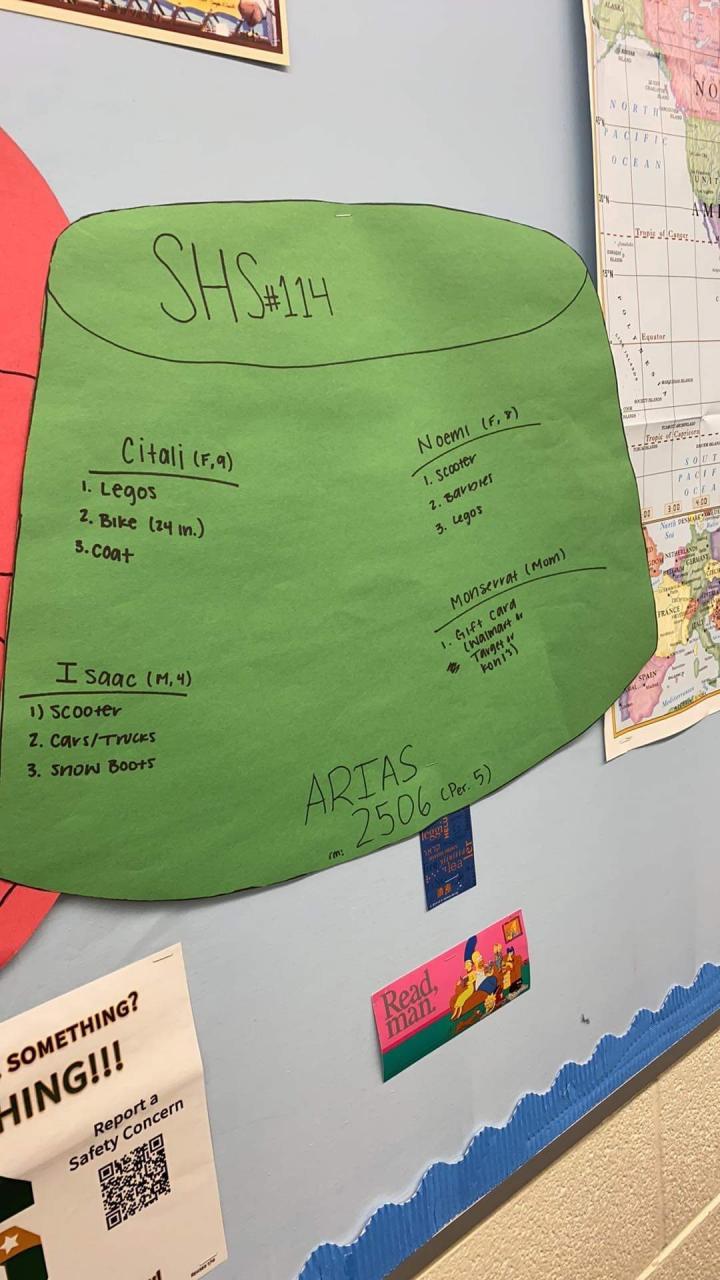 SHS#114
Citali (F,9)
1. Legos
2. Bike (24 in.)
3. Coat
Noemi (F, 8)
1. Scooter
2. Barbies
3. Legos
Monserrat (Mom)
1. Gift Card
(Walmart or
Target or
Kohl's)
Isaac (M, 4)
1) Scooter
2. Cars/Trucks
3. Snow Boots
ARIAS
rm: 2506 (Per. 5)
Read,
man.
SOMETHING?
HING!!!
Report a
Safety Concern
ALASKA
NORTH
PACIFIC
OCEAN
Tropic of Cancer
Equator
Tropic of Capricorn
North
Sea
DENMARK
NETHERLANDS
GERMANY
FRANCE
SPAIN
Mediterranean